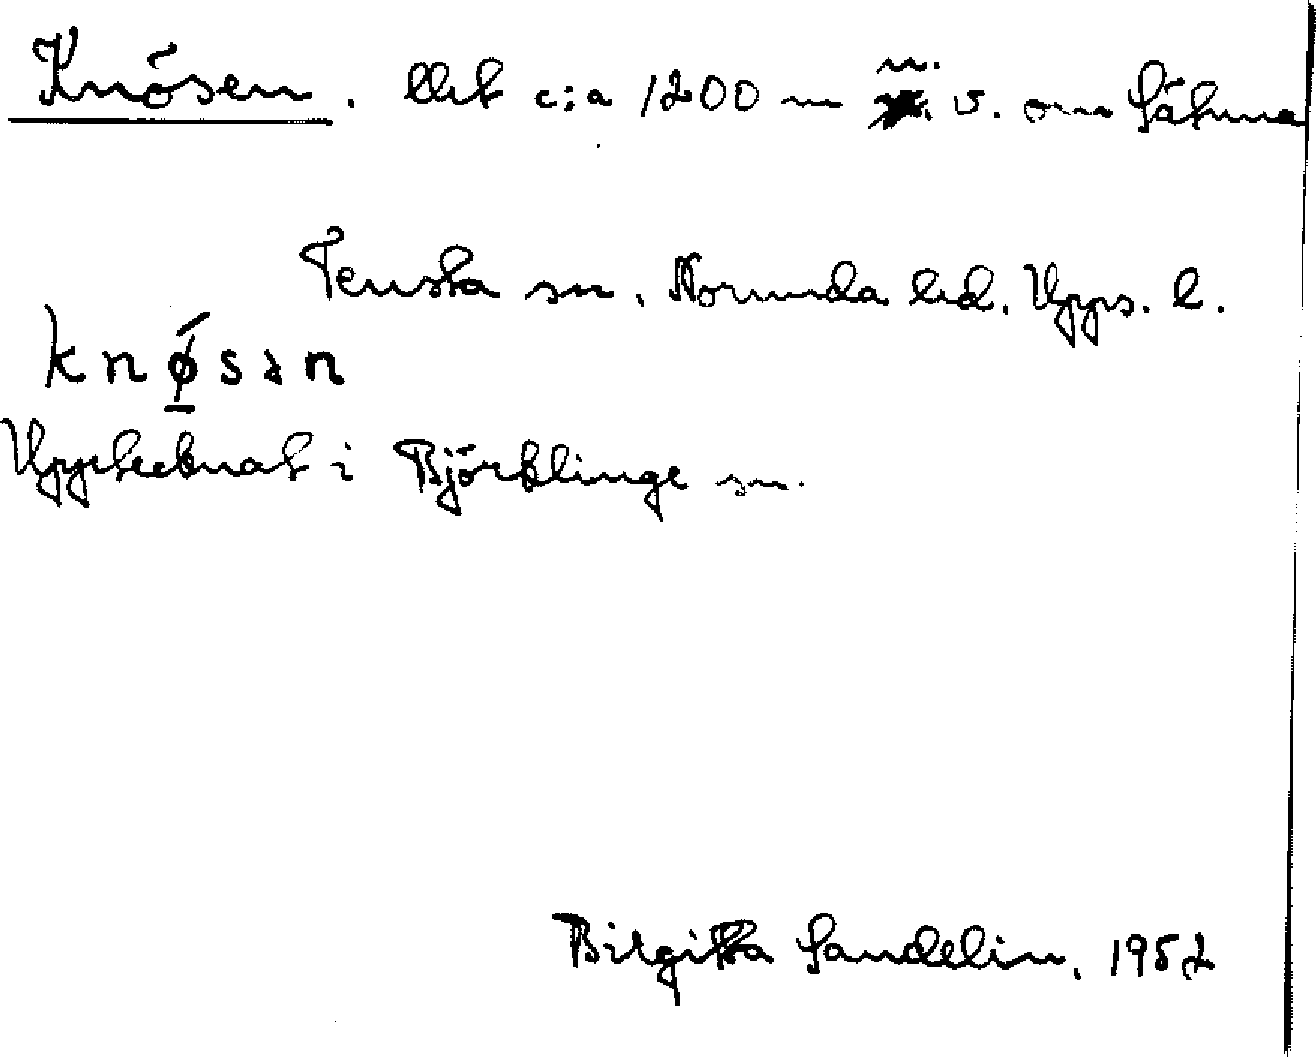 Knösen. Utt c:a 1200 m n. v. om Sätuna
Tensta sn. Norunda hd. Upps. l.
knǿ̱sən
Upptecknat i Björklinge sn.
Birgitta Sandelin, 1952